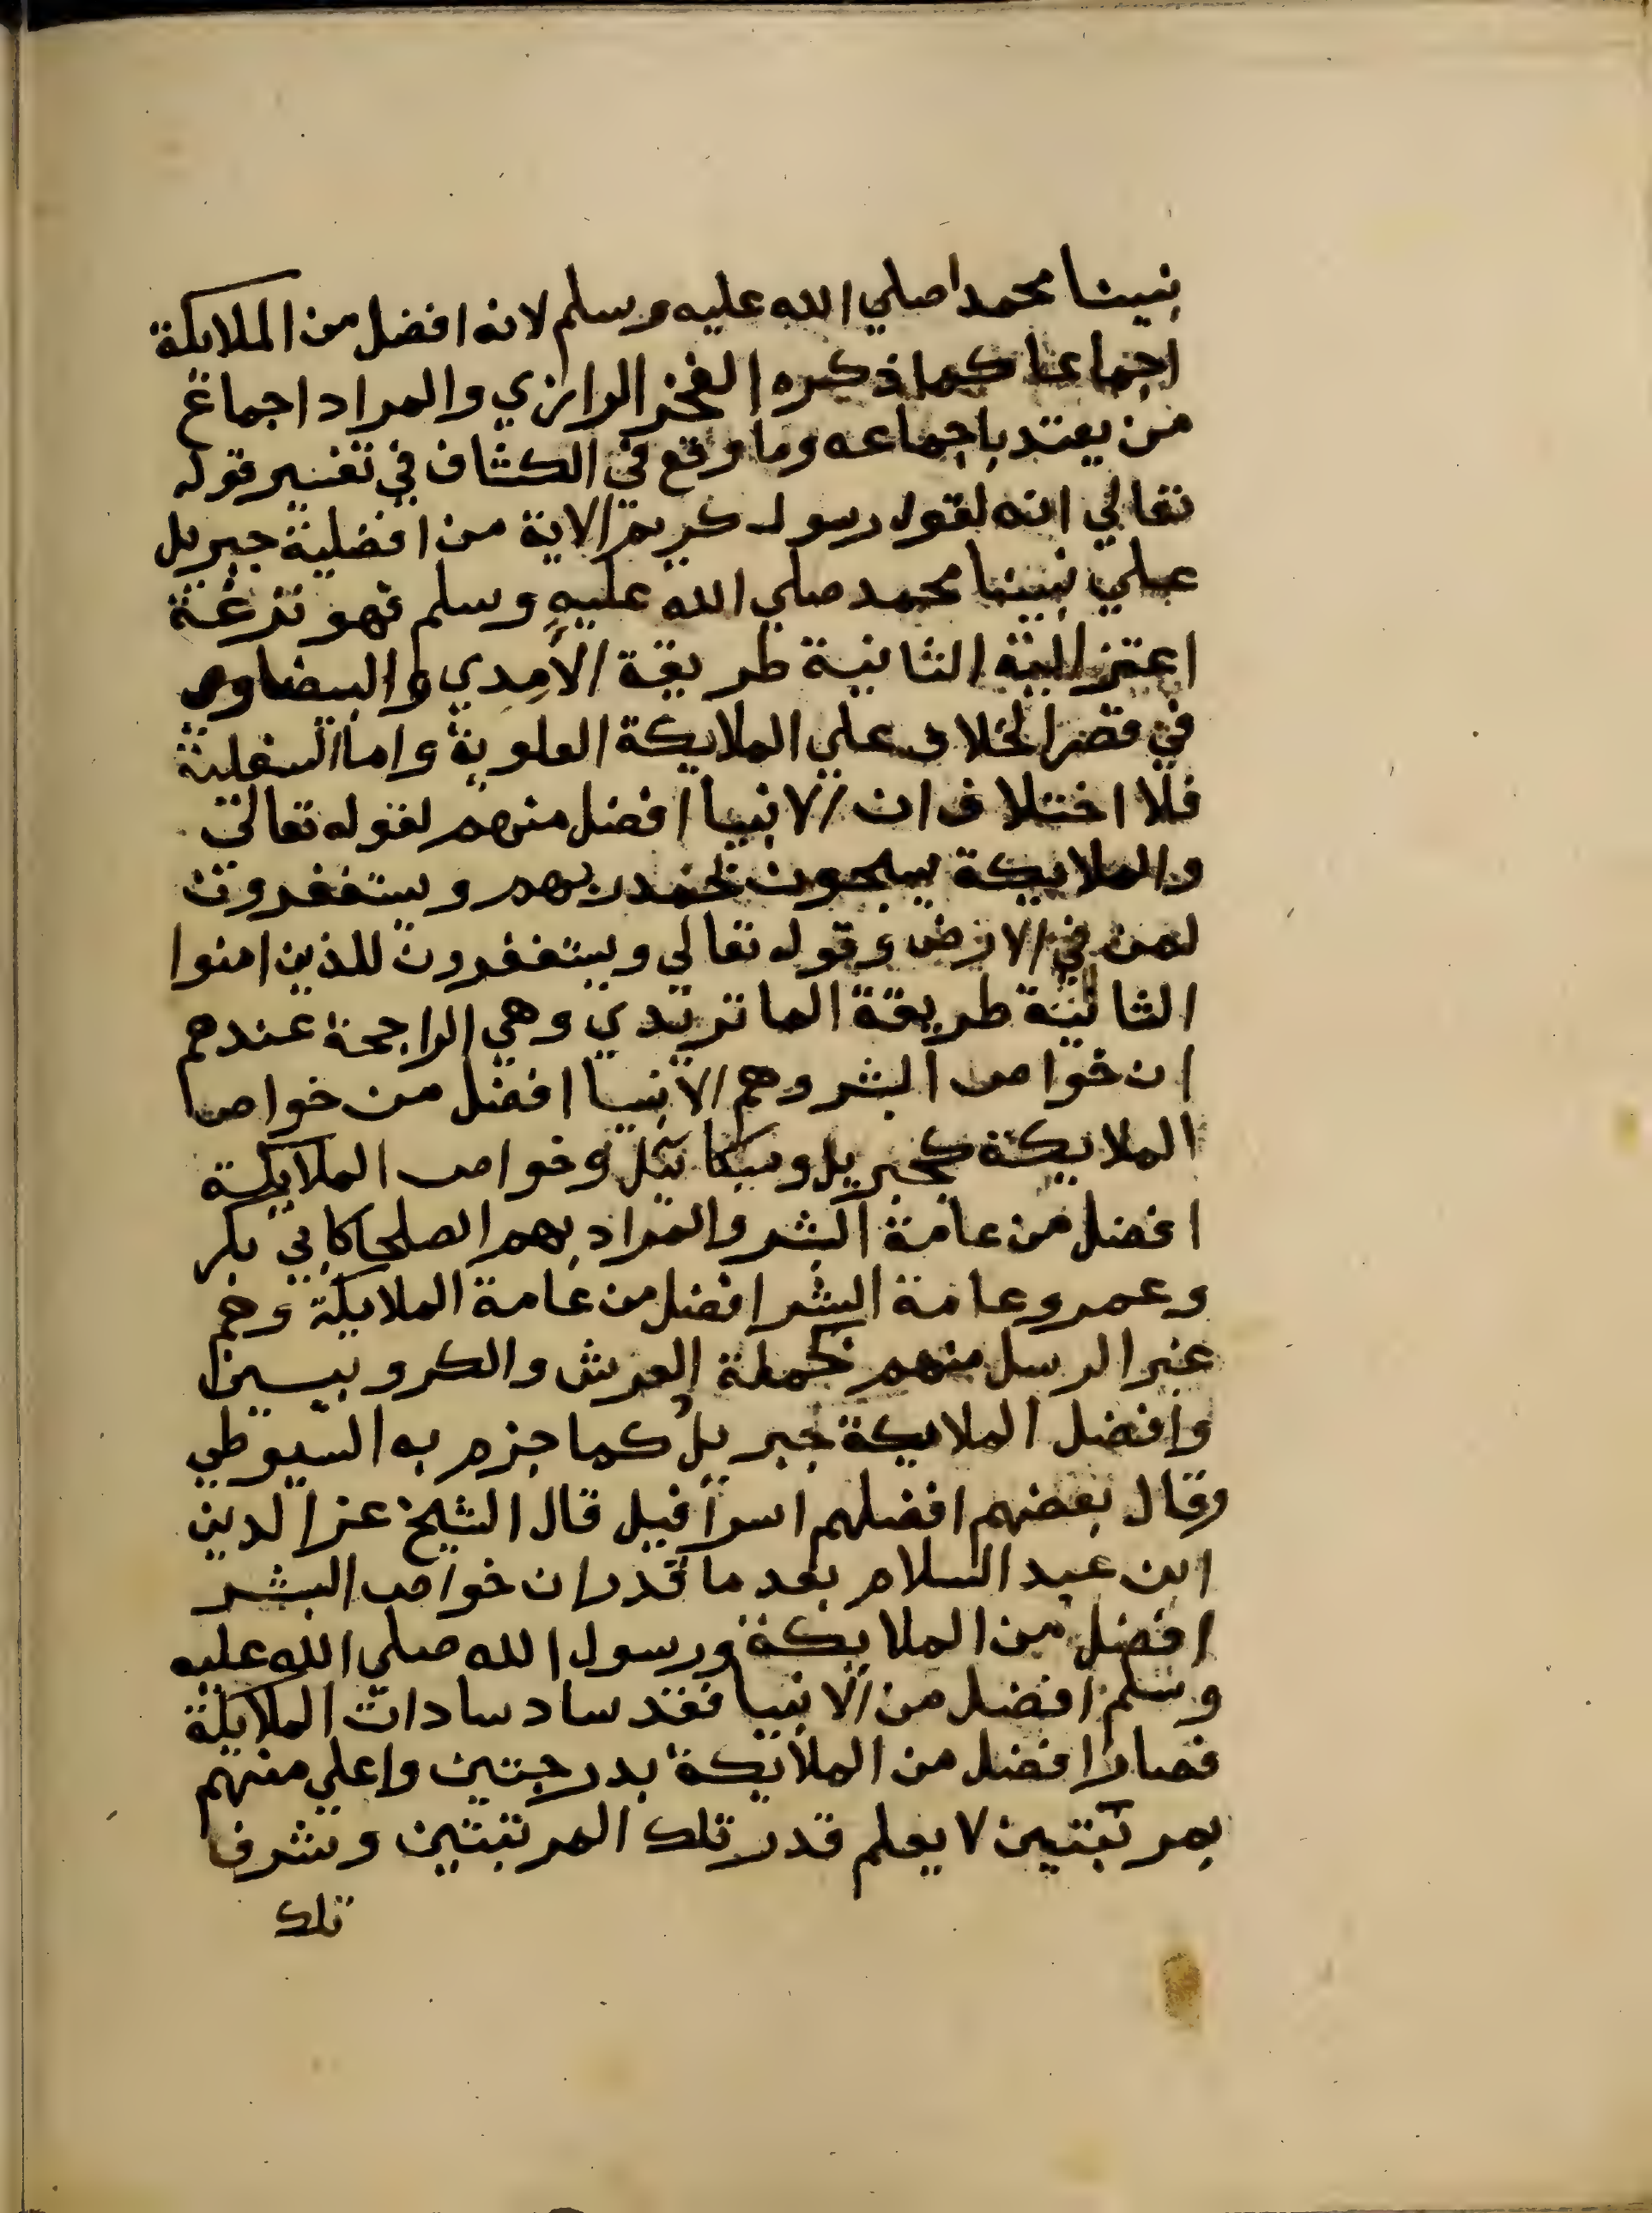 نبينا محمدا صلي الله عليه وسلم لانه افضل من الملايكة
اجماعا كما ذكره الفخر الرازي والمراد اجماع
من يعتد باجماعه وما وقع في الكشاف في تفسير قوله
تعالي انه لقول رسول كريم الاية من افضلية جبريل
علي نبينا محمد صلي الله عليه وسلم فهو نزغة
اعتزالية الثانية طريقة الآمدي والبيضاوي
في قصر الخلاف علي الملايكة العلوية واما السفلية
فلا اختلاف ان الانبيا افضل منهم لقوله تعالي
والملايكة يسبحون بحمد ربهم ويستغفرون
لمن في الارض وقوله تعالي ويستغفرون للذين امنوا
الثالثة طريقة الماتريدي وهي الراجحة عندهم
ان خواص البشر وهم الانبيا افضل من خواص
الملايكة كجبريل وميكائيل وخواص الملايكة
افضل من عامة البشر والمراد بهم الصلحا كابي بكر
وعمر وعامة البشر افضل من عامة الملايكة وهم
غير الرسل منهم كحملة العرش والكروبيين
وافضل الملايكة جبريل كما جزم به السيوطي
وقال بعضهم افضلهم اسرافيل قال الشيخ عز الدين
ابن عبد السلام بعد ما قدر ان خواص البشر
افضل من الملايكة ورسول الله صلي الله عليه
وسلم افضل من الانبيا فقد ساد سادات الملايكة
فصار افضل من الملايكة بدرجتين واعلي منهم
بمرتبتين لا يعلم قدر تلك المرتبتين وشرف
تلك